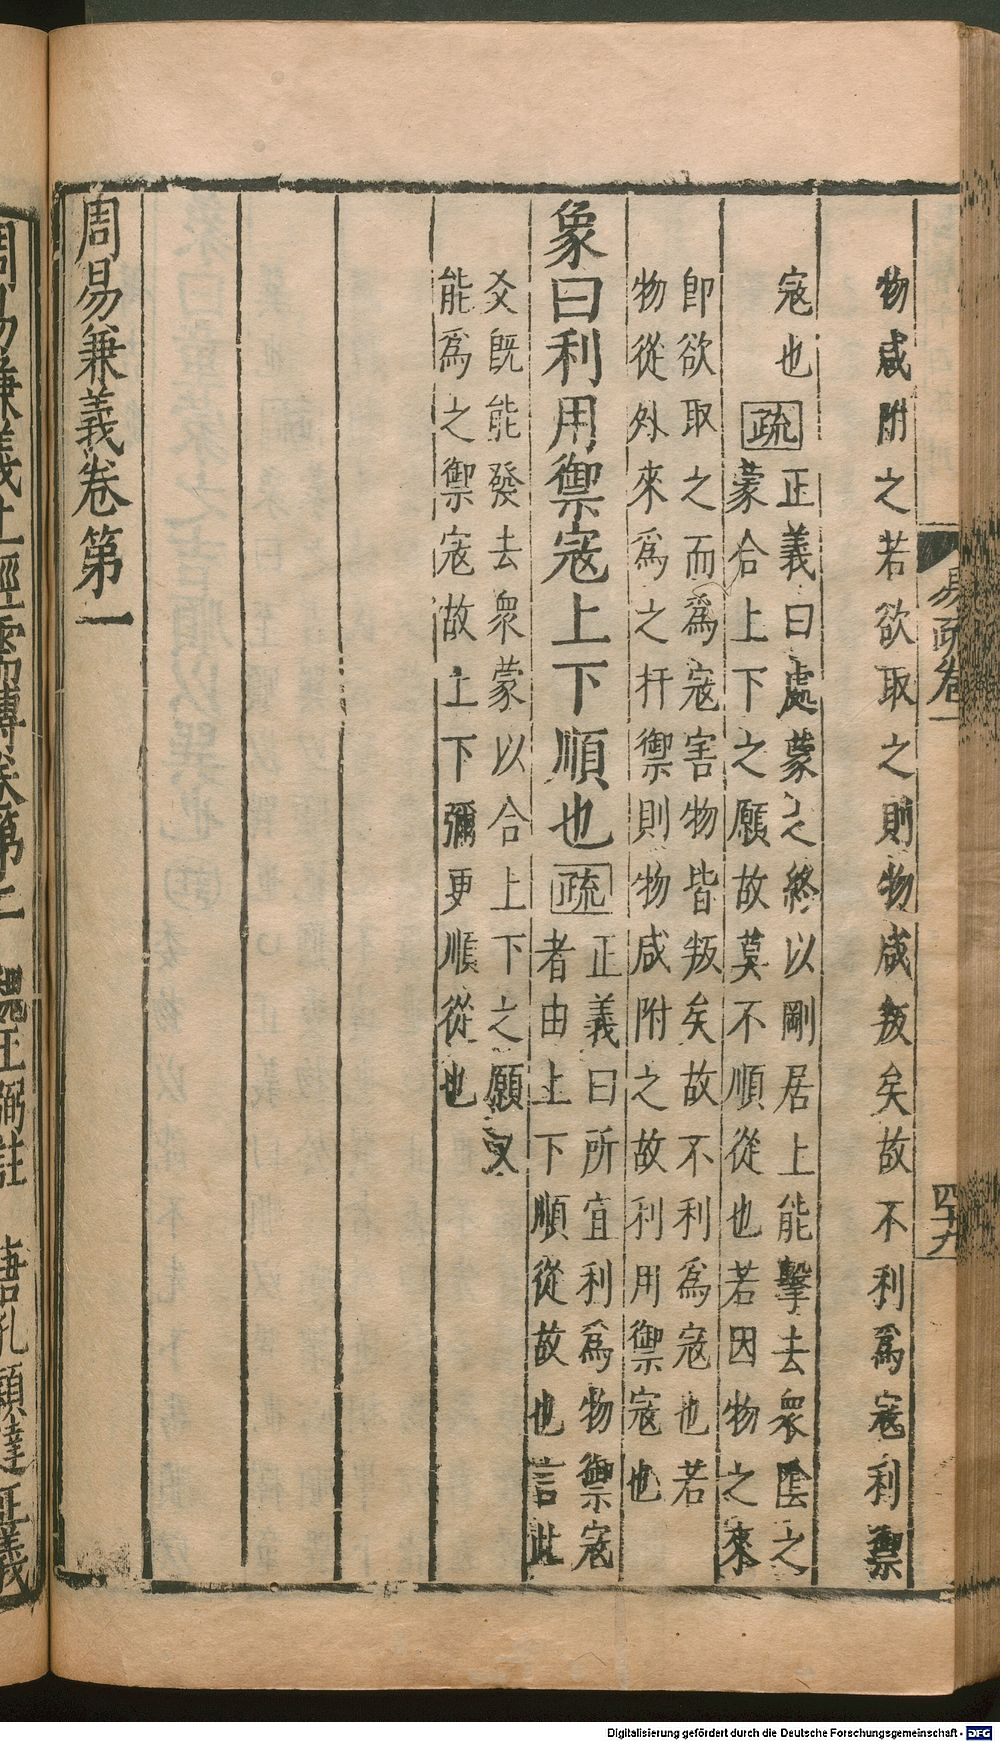 易疏卷一
四十九
物咸附之若欲取之則物咸叛矣故不利爲寇利禦
寇也
疏
正義曰處蒙之終以剛居上能擊去衆陰之
蒙合上下之願故莫不順從也若因物之來
即欲取之而爲寇害物皆叛矣故不利爲寇也若
物從外來爲之扞禦則物咸附之故利用禦寇也
象曰利用禦寇上下順也
疏
正義曰所宜利爲物禦寇
者由上下順從故也言此
爻既能發去衆蒙以合上下之願又
能爲之禦寇故上下彌更順從也
周易兼義卷第一
周易兼義上經需傳卷第二 魏王弼註 唐孔穎達正義
Digitalisierung gefördert durch die Deutsche Forschungsgemeinschaft - DFG